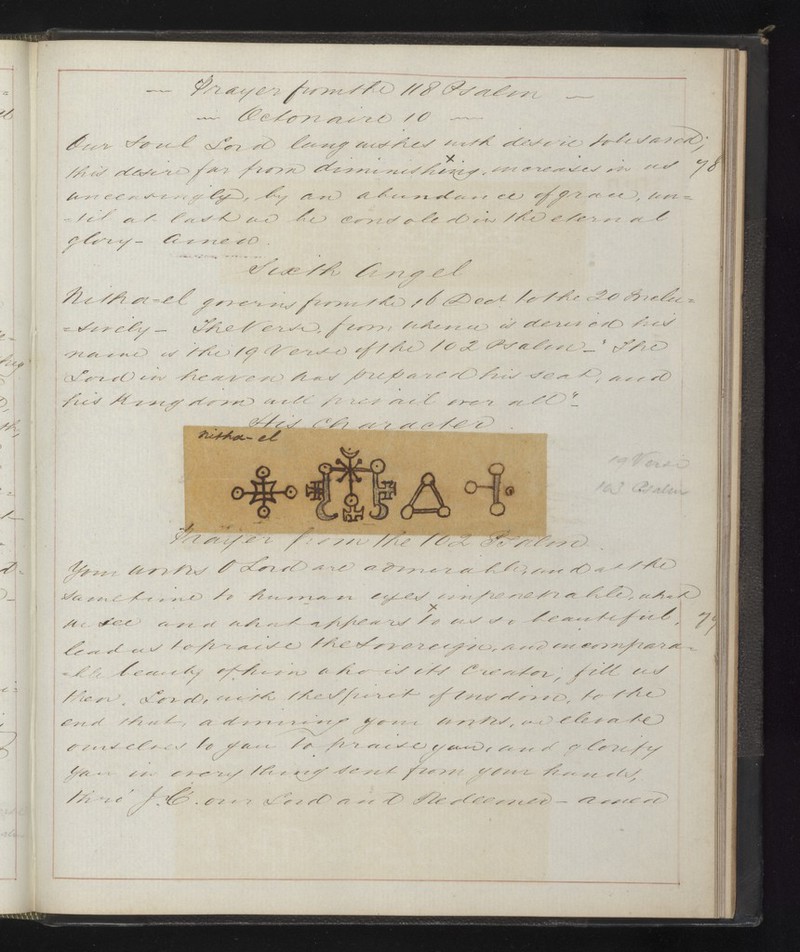 — Prayer from the 118 Psalm —
— Octonaire 10 —
Our Soul Lord languishes with desire to be saved;
this desire far from diminishing, increases in us 78
unceasingly, by an abundance of grace, un=
=til at last we be consoled in the eternal
glory – Amen.
Sixth Angel
Nitha-el governs from the 16 Decr to the 20 Inclu=
=sively – The Verse, from whence is derived his
name is the 19 Verse of the 102 Psalm – "The
Lord in heaven has prepared his seat, and
his Kingdom will prevail over all" –
His Character
Nitha-el
19 Verse
103 Psalm
Prayer from the 102 Psalm.
Your works O Lord are admirable, and at the
same time to human eyes impenetrable, what
we see and what appears to us so beautiful, 79
lead us to praise the sovereign, and incompara=
=ble beauty of him who is its Creator; fill us
then, Lord, with the Spirit of wisdom, to the
end that, admiring your works, we elevate
ourselves to you to praise you, and glorify
you in every thing sent from your hands,
thro' J.C. our Lord and Redeemer – amen